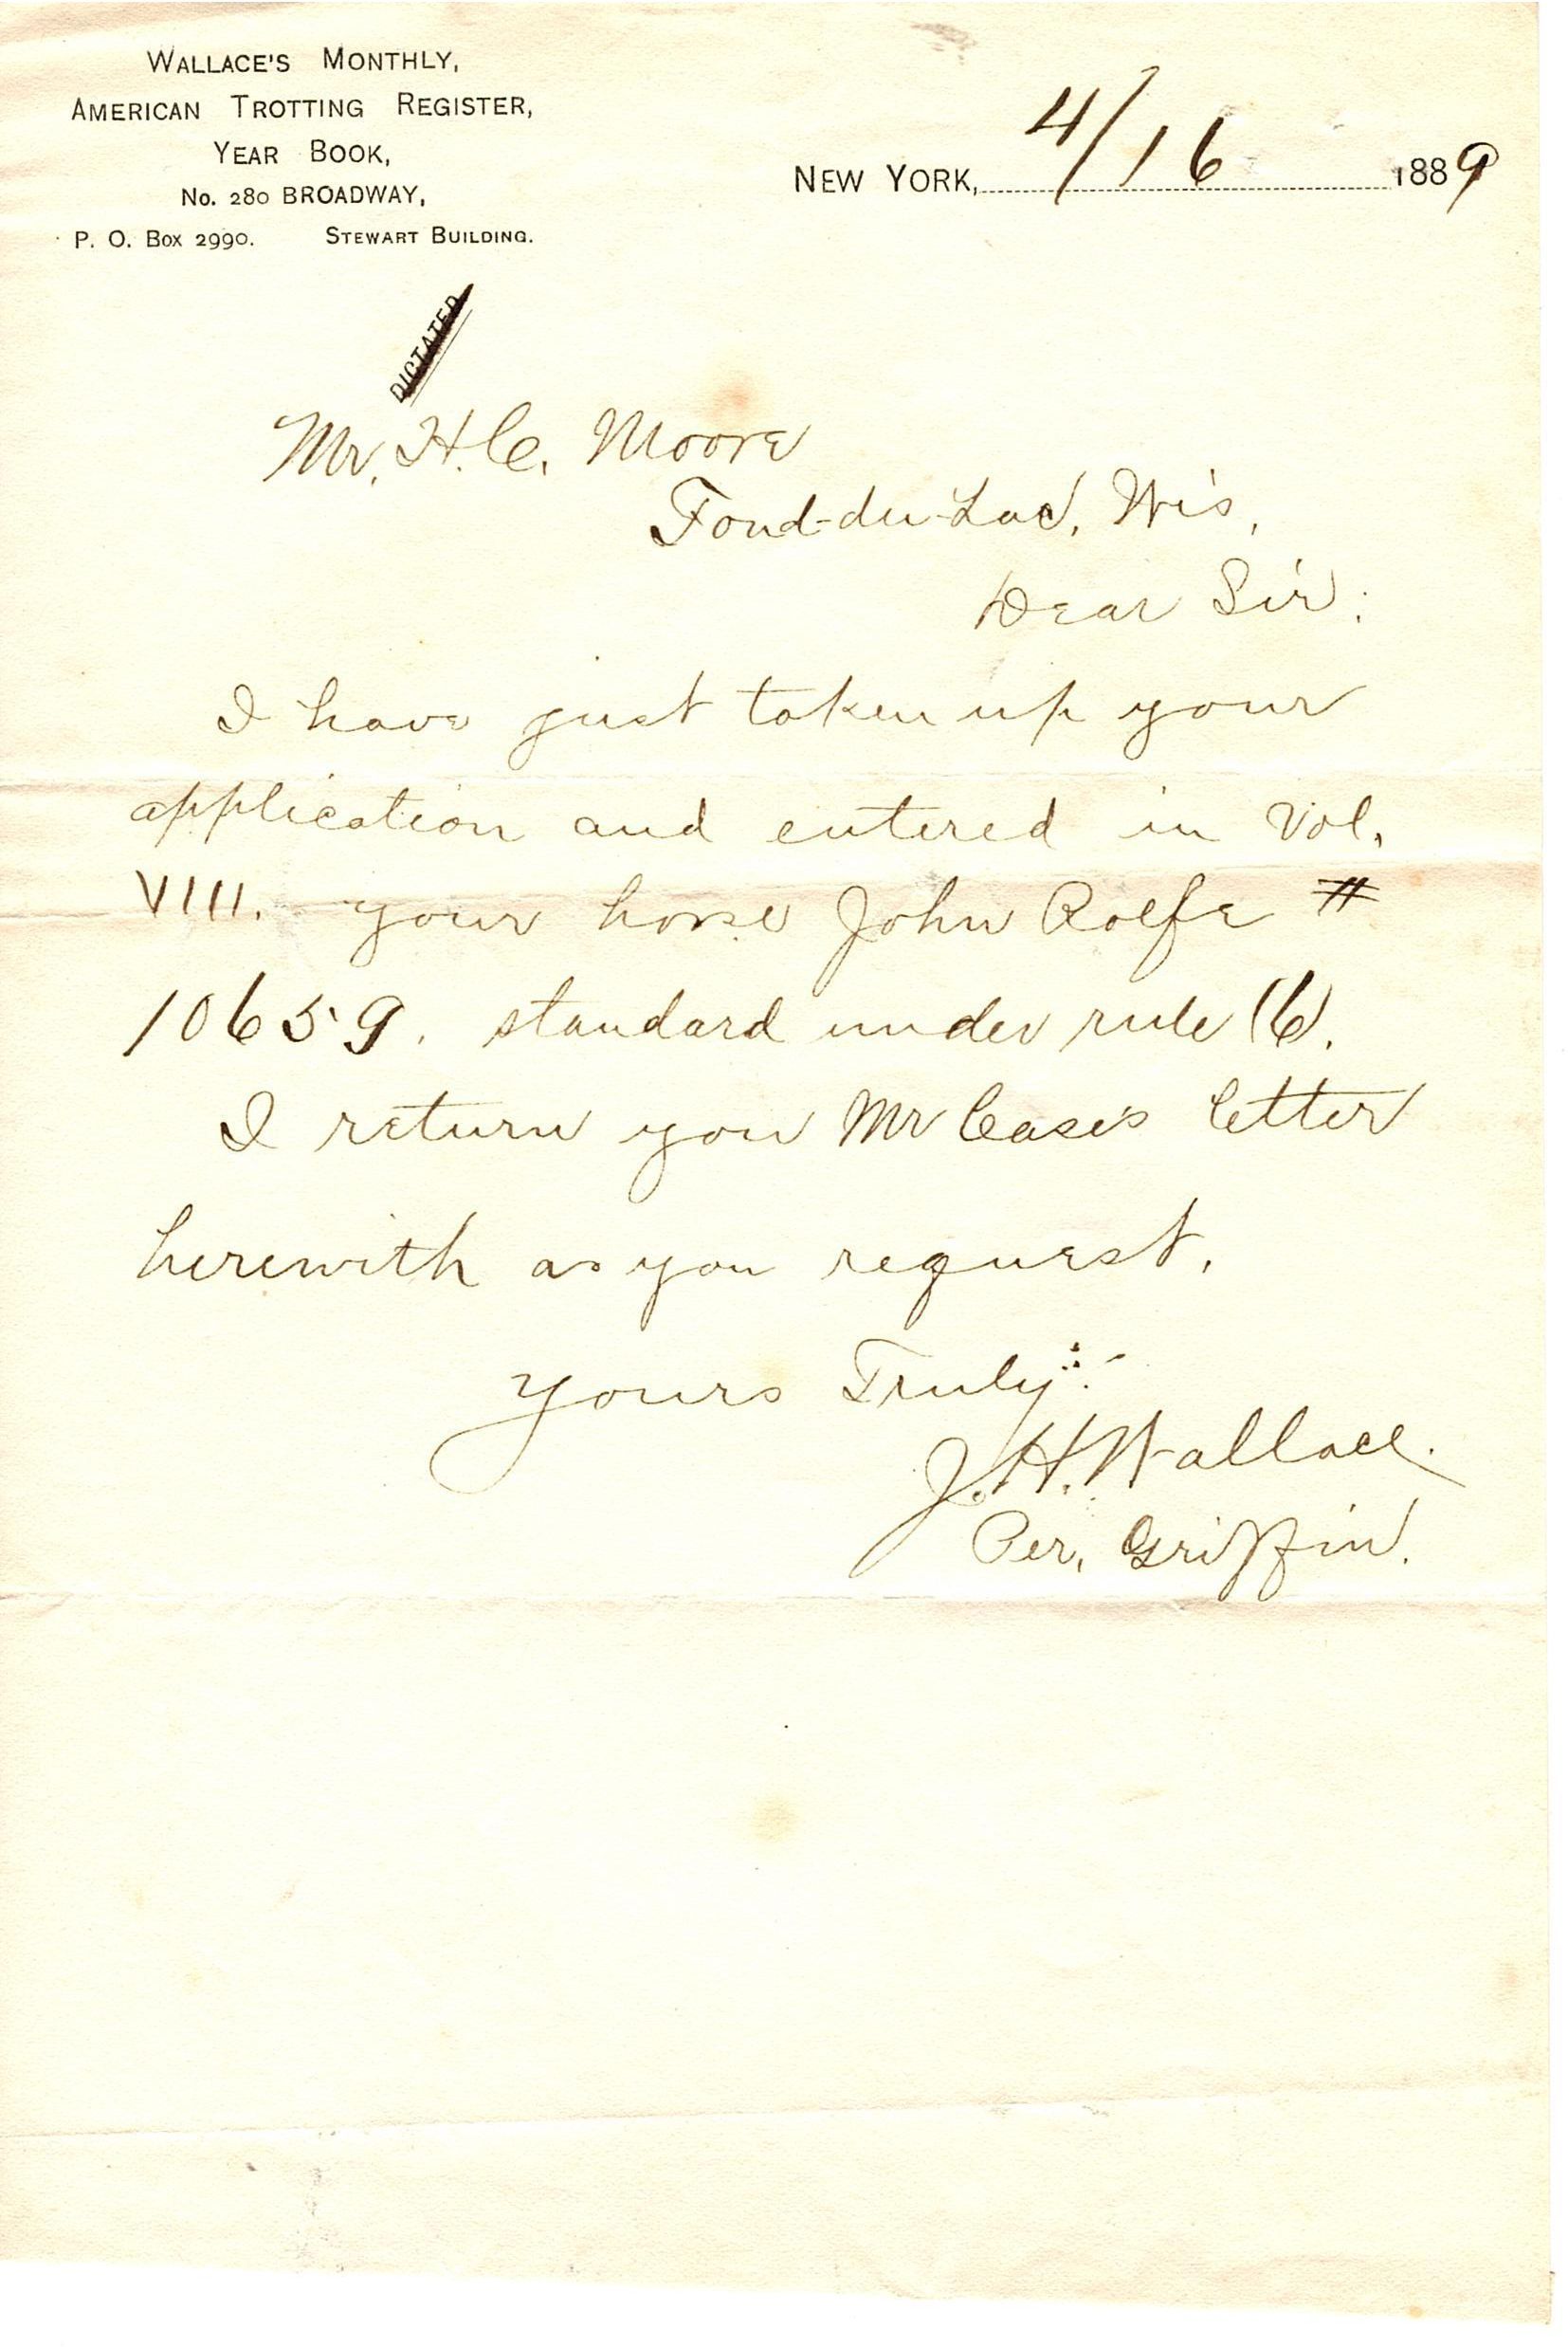 WALLACE'S MONTHLY,
AMERICAN TROTTING REGISTER,
YEAR BOOK,
No. 280 BROADWAY,
P. O. Box 2990. STEWART BUILDING.
NEW YORK, 4/16 1889
DICTATED
Mr. H. C. Moore
Fond-du-Lac, Wis,
Dear Sir:
I have just taken up your
application and entered in Vol.
VIII. your horse John Rolfe #
10659. standard under rule (6).
I return you Mr Case's letter
herewith as you request.
Yours Truly
J. H. Wallace.
Per, Griffin.